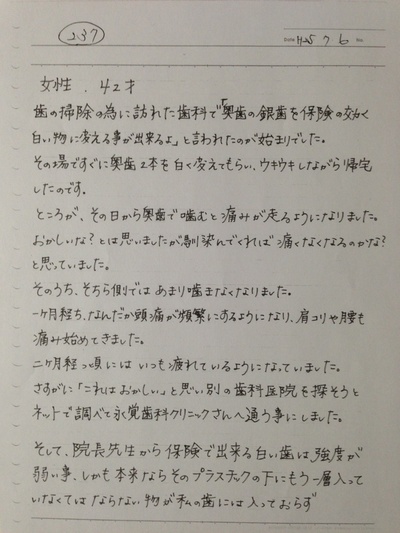 237
Date H25 7 6 No.
女性 . 42才
歯の掃除の為に訪れた歯科で「奥歯の銀歯を保険の効く
白い物に変える事が出来るよ」と言われたのが始まりでした。
その場ですぐに奥歯2本を白く変えてもらい、ウキウキしながら帰宅
したのです。
ところが、その日から奥歯で噛むと痛みが走るようになりました。
おかしいな?とは思いましたが馴染んでくれば痛くなくなるのかな?
と思っていました。
そのうち、そちら側ではあまり噛まなくなりました。
一ヶ月経ち、なんだか頭痛が頻繁にするようになり、肩コリや腰も
痛み始めてきました。
二ヶ月経つ頃にはいつも疲れているようになっていました。
さすがに「これはおかしい」と思い別の歯科医院を探そうと
ネットで調べて永覚歯科クリニックさんへ通う事にしました。
そして、院長先生から保険で出来る白い歯は、強度が
弱い事、しかも本来ならそのプラスチックの下にもう一層入って
いなくてはならない物が私の歯には入っておらず